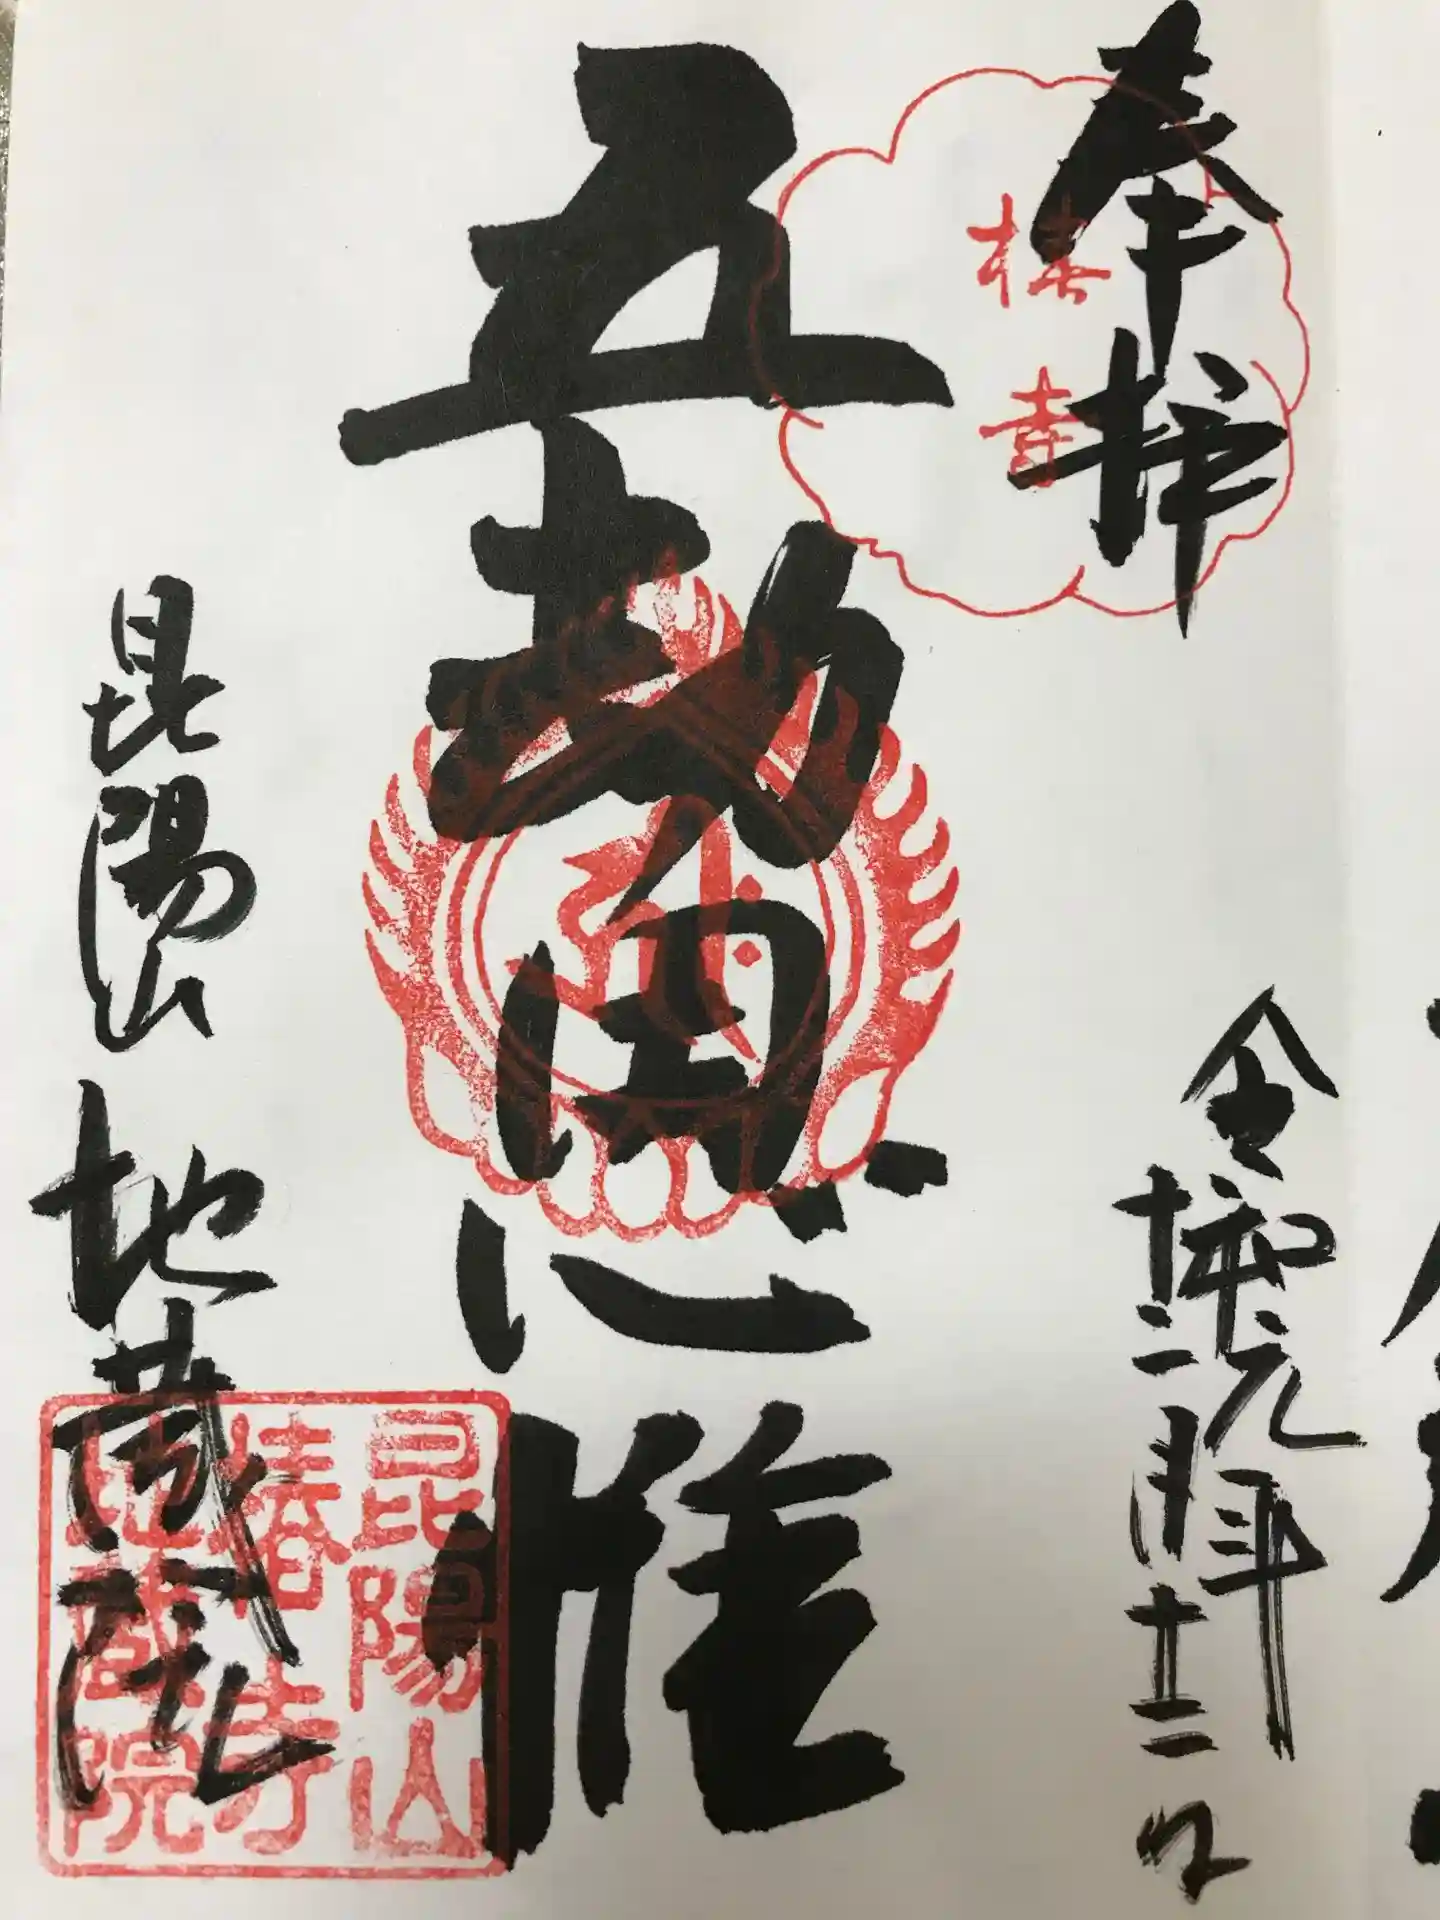 奉拝
令和元年
十二月十二日
五劫思惟
昆陽山 地蔵院
昆陽山
椿寺
地蔵院
椿寺